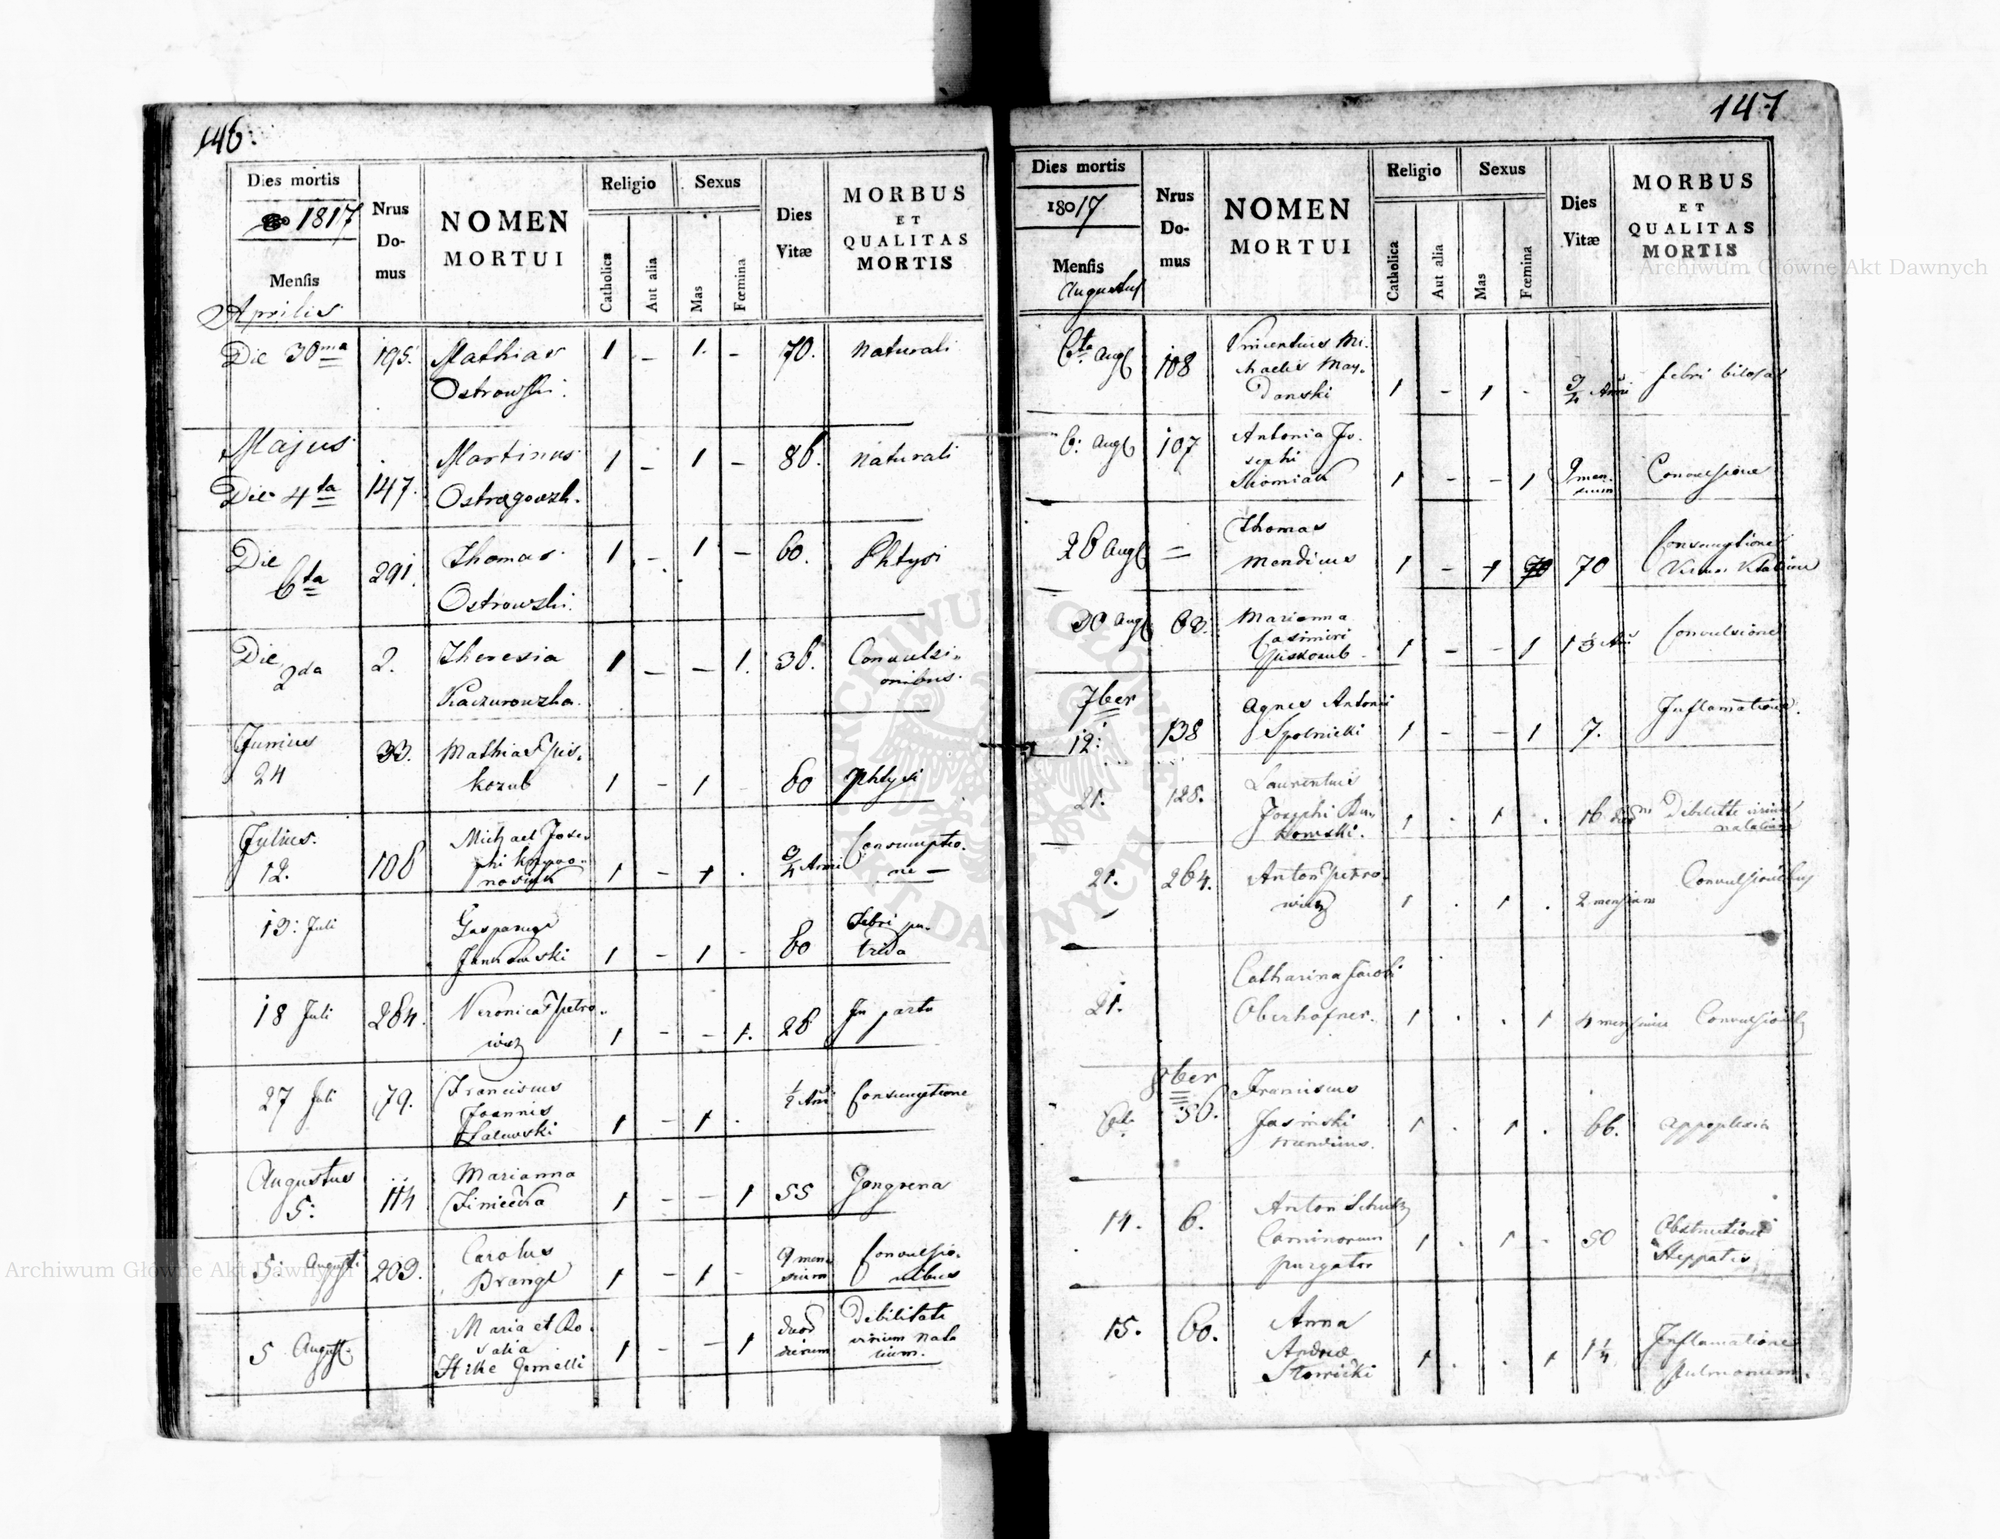 146.
Dies mortis
1817
Mensis
Aprilis
Nrus
Do-
mus
NOMEN
MORTUI
Religio
Catholica
Aut alia
Sexus
Mas
Fœmina
Dies
Vitæ
MORBUS
ET
QUALITAS
MORTIS
Die 30ma 195. Mathias 1 – 1. – 70. Naturali
Ostrowski.
Majus
Die 4ta 147. Martinus 1 – 1 – 86. Naturali
Die 6ta 291. Thomas 1 – 1 – 60. Phtysi
Ostrowski.
Die 2da 2. Theresia 1 – – 1. 36. Convulsi-
onibus.
Junius
24 33. Mathias Pis-
kozub 1 – 1 60 Phtysi
Julius.
12. 108 Michael Jose-
phi 1 – 1 . 3/4 Anni Consumptio-
ne –
13: Juli
1 – 1 – 60 Febri pu-
trida
18 Juli 264. Veronica Pietro-
wicz 1 – – 1. 26 In partu
27 Juli 79. Franciscus
Joannis 1/2 Consumptione
1 – 1 .
Augustus
5: 114 Marianna
1 – – 1 55 Gangrena
5: Augusti 203. Carolus 9 men-
sium Convulsio-
nibus
1 – 1 –
5 August. Maria et Ro-
salia
Gemelli 1 – – 1 Debilitate
virium nata
lium.
147
Dies mortis
1817
Mensis
Augustus
Nrus
Do-
mus
NOMEN
MORTUI
Religio
Catholica
Aut alia
Sexus
Mas
Fœmina
Dies
Vitæ
MORBUS
ET
QUALITAS
MORTIS
6ta Aug 108 Vincentius Mi-
chaelis May-
danski 1 – 1 – 3/4 Anni febri biliosa
6: Aug 107 Antonia Jo-
sephi
1 – – 1 9 men-
sium Convulsione
26 Aug = Thomas
Mendicus 1 – 1 70 Consumptione
30 Aug 63. Marianna
Casimiri
Piskozub 1 – – 1 Convulsione
7ber
12: 138 Agnes Antonii
1 – – 1 7. Inflamatione.
21. 128. Laurentius
Josephi
1 . 1 . 16
21. 264. Anton Pietro-
wicz 1 . 1 . 2 mensium Convulsionibus
21. Catharina Jacobi
Oberhofner. 1 . . 1 4 mensium
8ber
6ta 50. Franciscus
Jasinski 1 . 1 . 66. Appoplexia
14. 6. Anton Schultz
Caminorum
purgator 1 . 1 – 50 Obstructione
Heppatis
15. 60. Anna
Andreæ
1 . . 1 1/4 Inflamatione
Pulmonum.
Archiwum Główne Akt Dawnych
Archiwum Główne Akt Dawnych
ARCHIWUM GŁÓWNE
AKT DAWNYCH